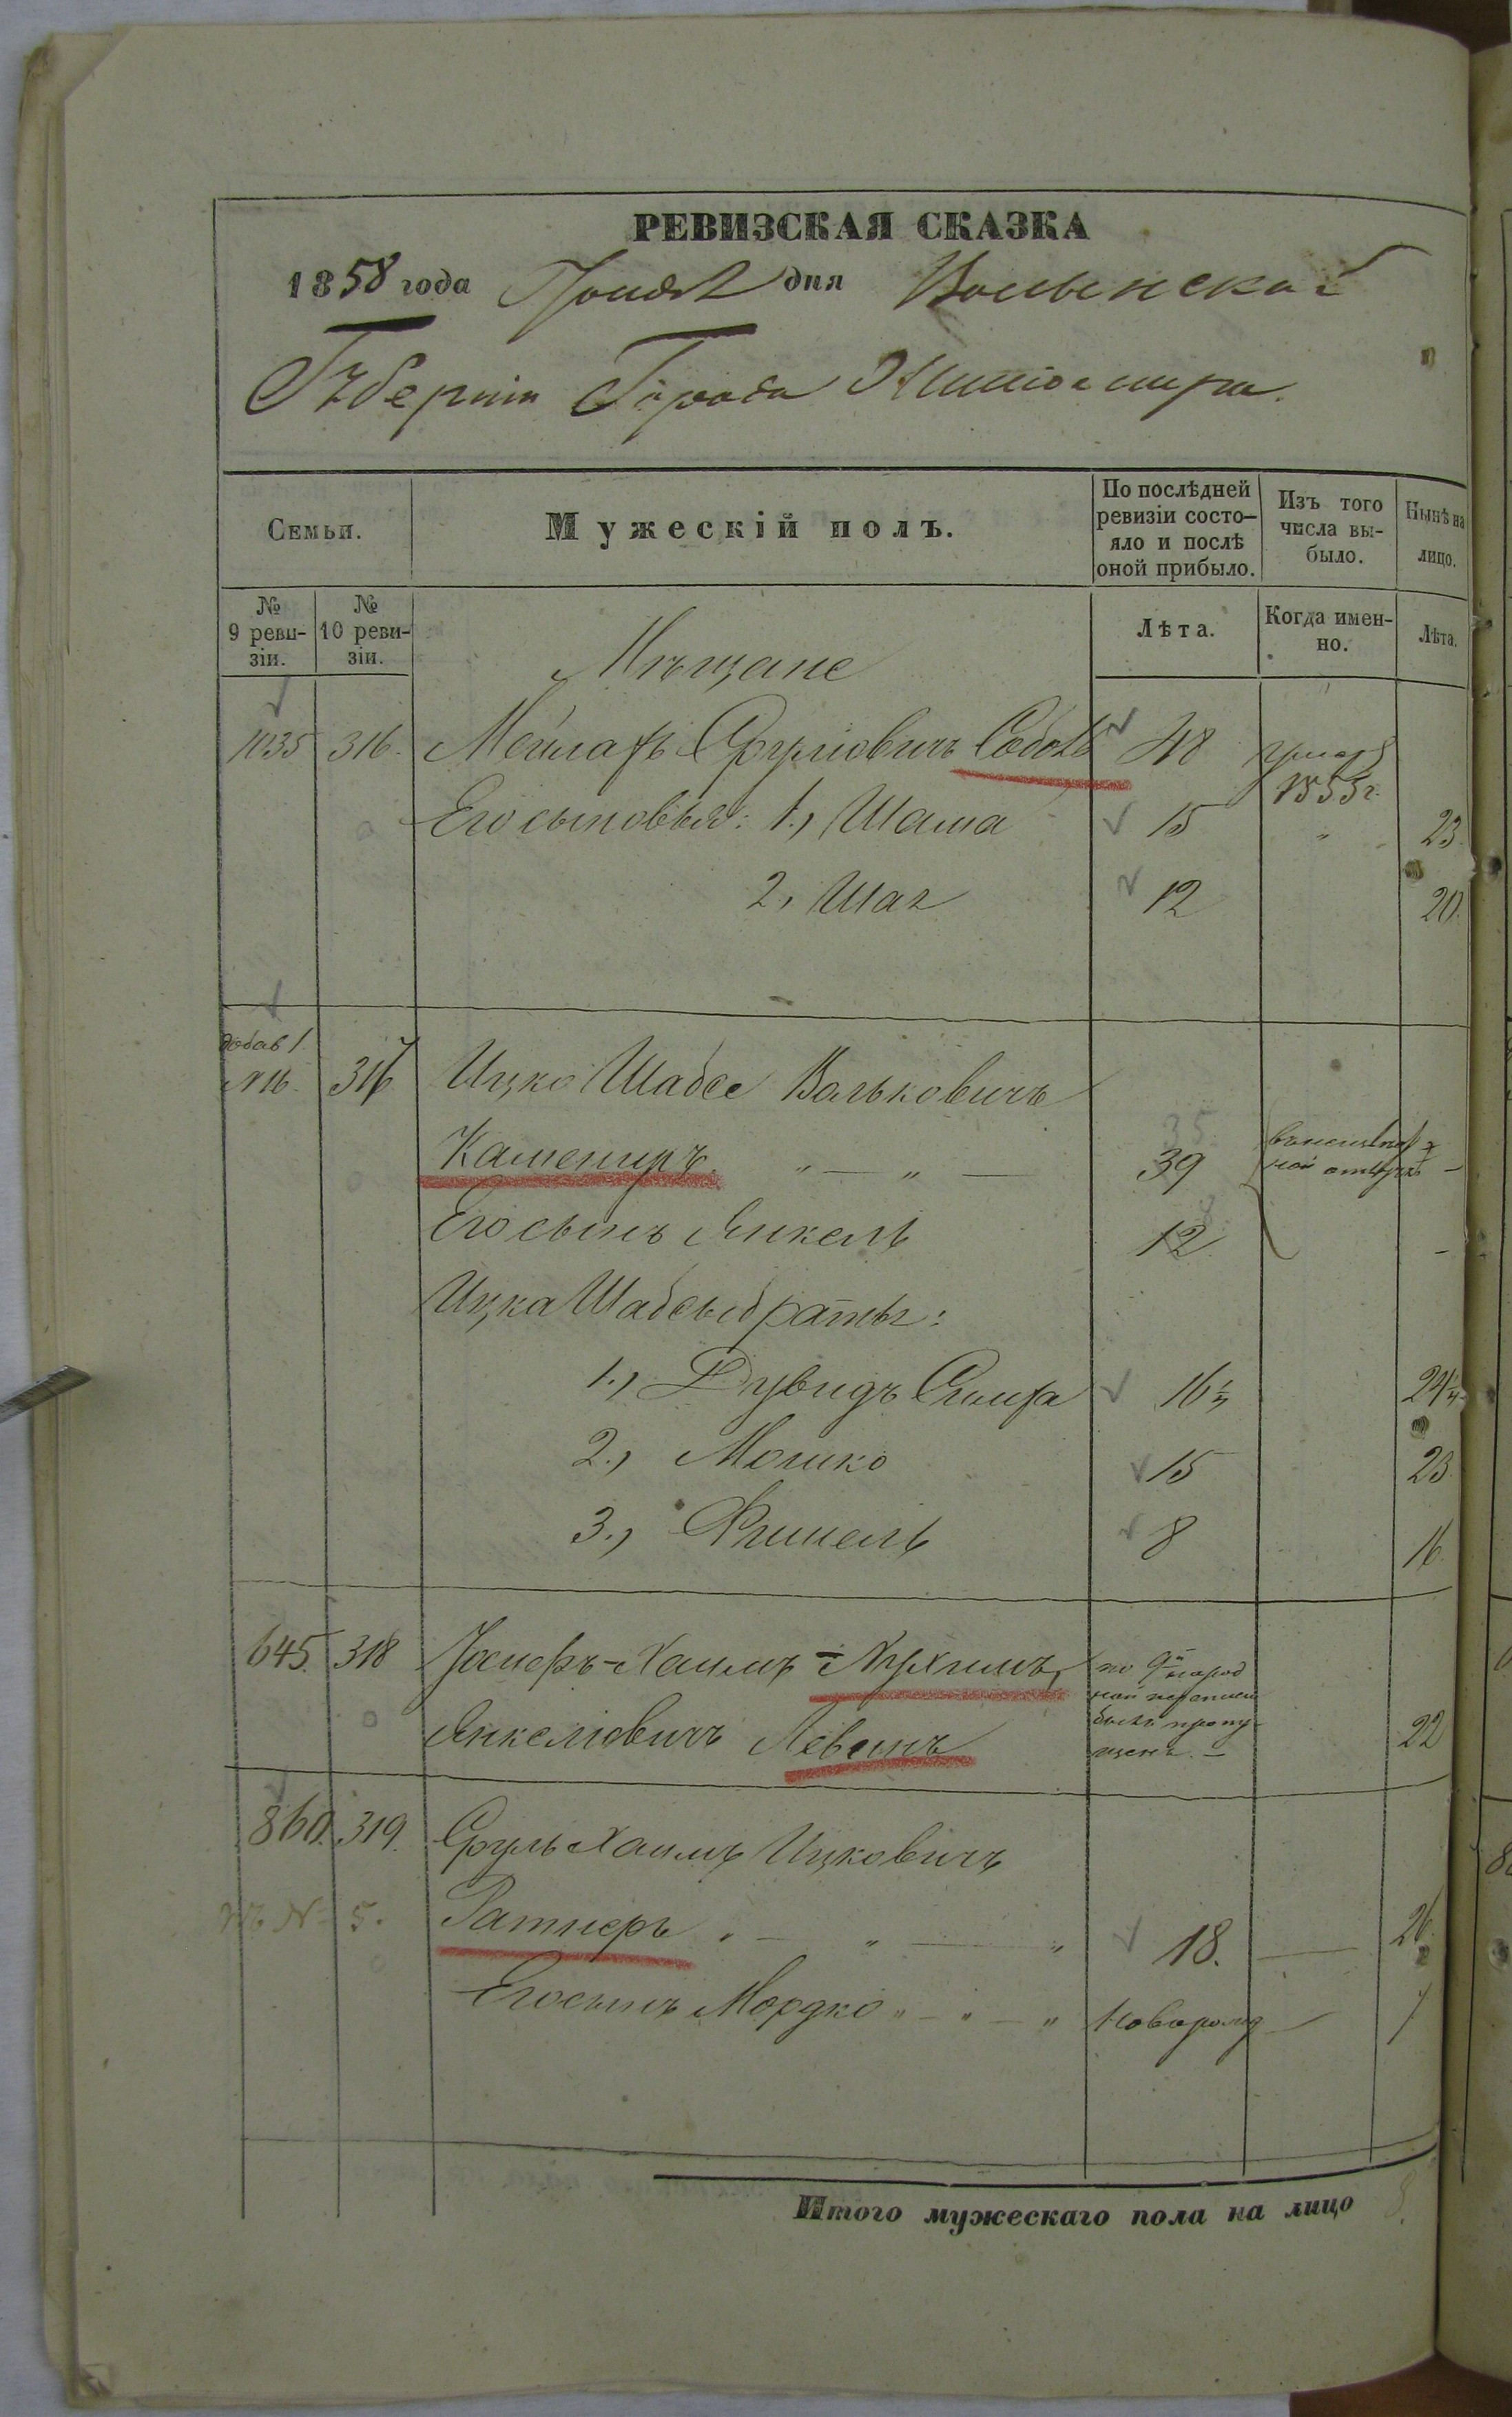 РЕВИЗСКАЯ СКАЗКА
1858 года Іюня дня Волынской
Губерніи Города Житомира.
Семьи.
Мужескій полъ.
По послѣдней ревизіи состо-яло и послѣ оной прибыло.
Изъ того числа вы-было.
Нынѣ на лицо.
№ 9 реви-зіи.
№ 10 реви-зіи.
Лѣта.
Когда имен-но.
Лѣта.
Мѣщане
1135 316. Мейлахъ Сруліовичъ Соболь 48 умеръ 1855 г.
Его сыновья: 1., Шама 15 " 23.
2., Шая 12 20.
добав /
№ 16. 317 Ицко Шабсе Вольковичъ
35
Камениръ. " — " — 39
Его сынъ Янкель 12. -
Ицка Шабсы братья:
1., Дувидъ 16½ 24½
2., Мошко 15 23.
3., Фишель 8 16.
645. 318 Іосифъ-Хаимъ-Нухимъ, по 9й народ
ной переписи
Янкеліовичъ Левинъ былъ пропу- 22
щенъ. —
860. 319. Сруль Хаимъ Ицковичъ
№ 5. Ратнеръ " — " — " 18. — 26.
Его сынъ Мордко " — " — " новорожд — 7
Итого мужескаго пола на лицо 8.